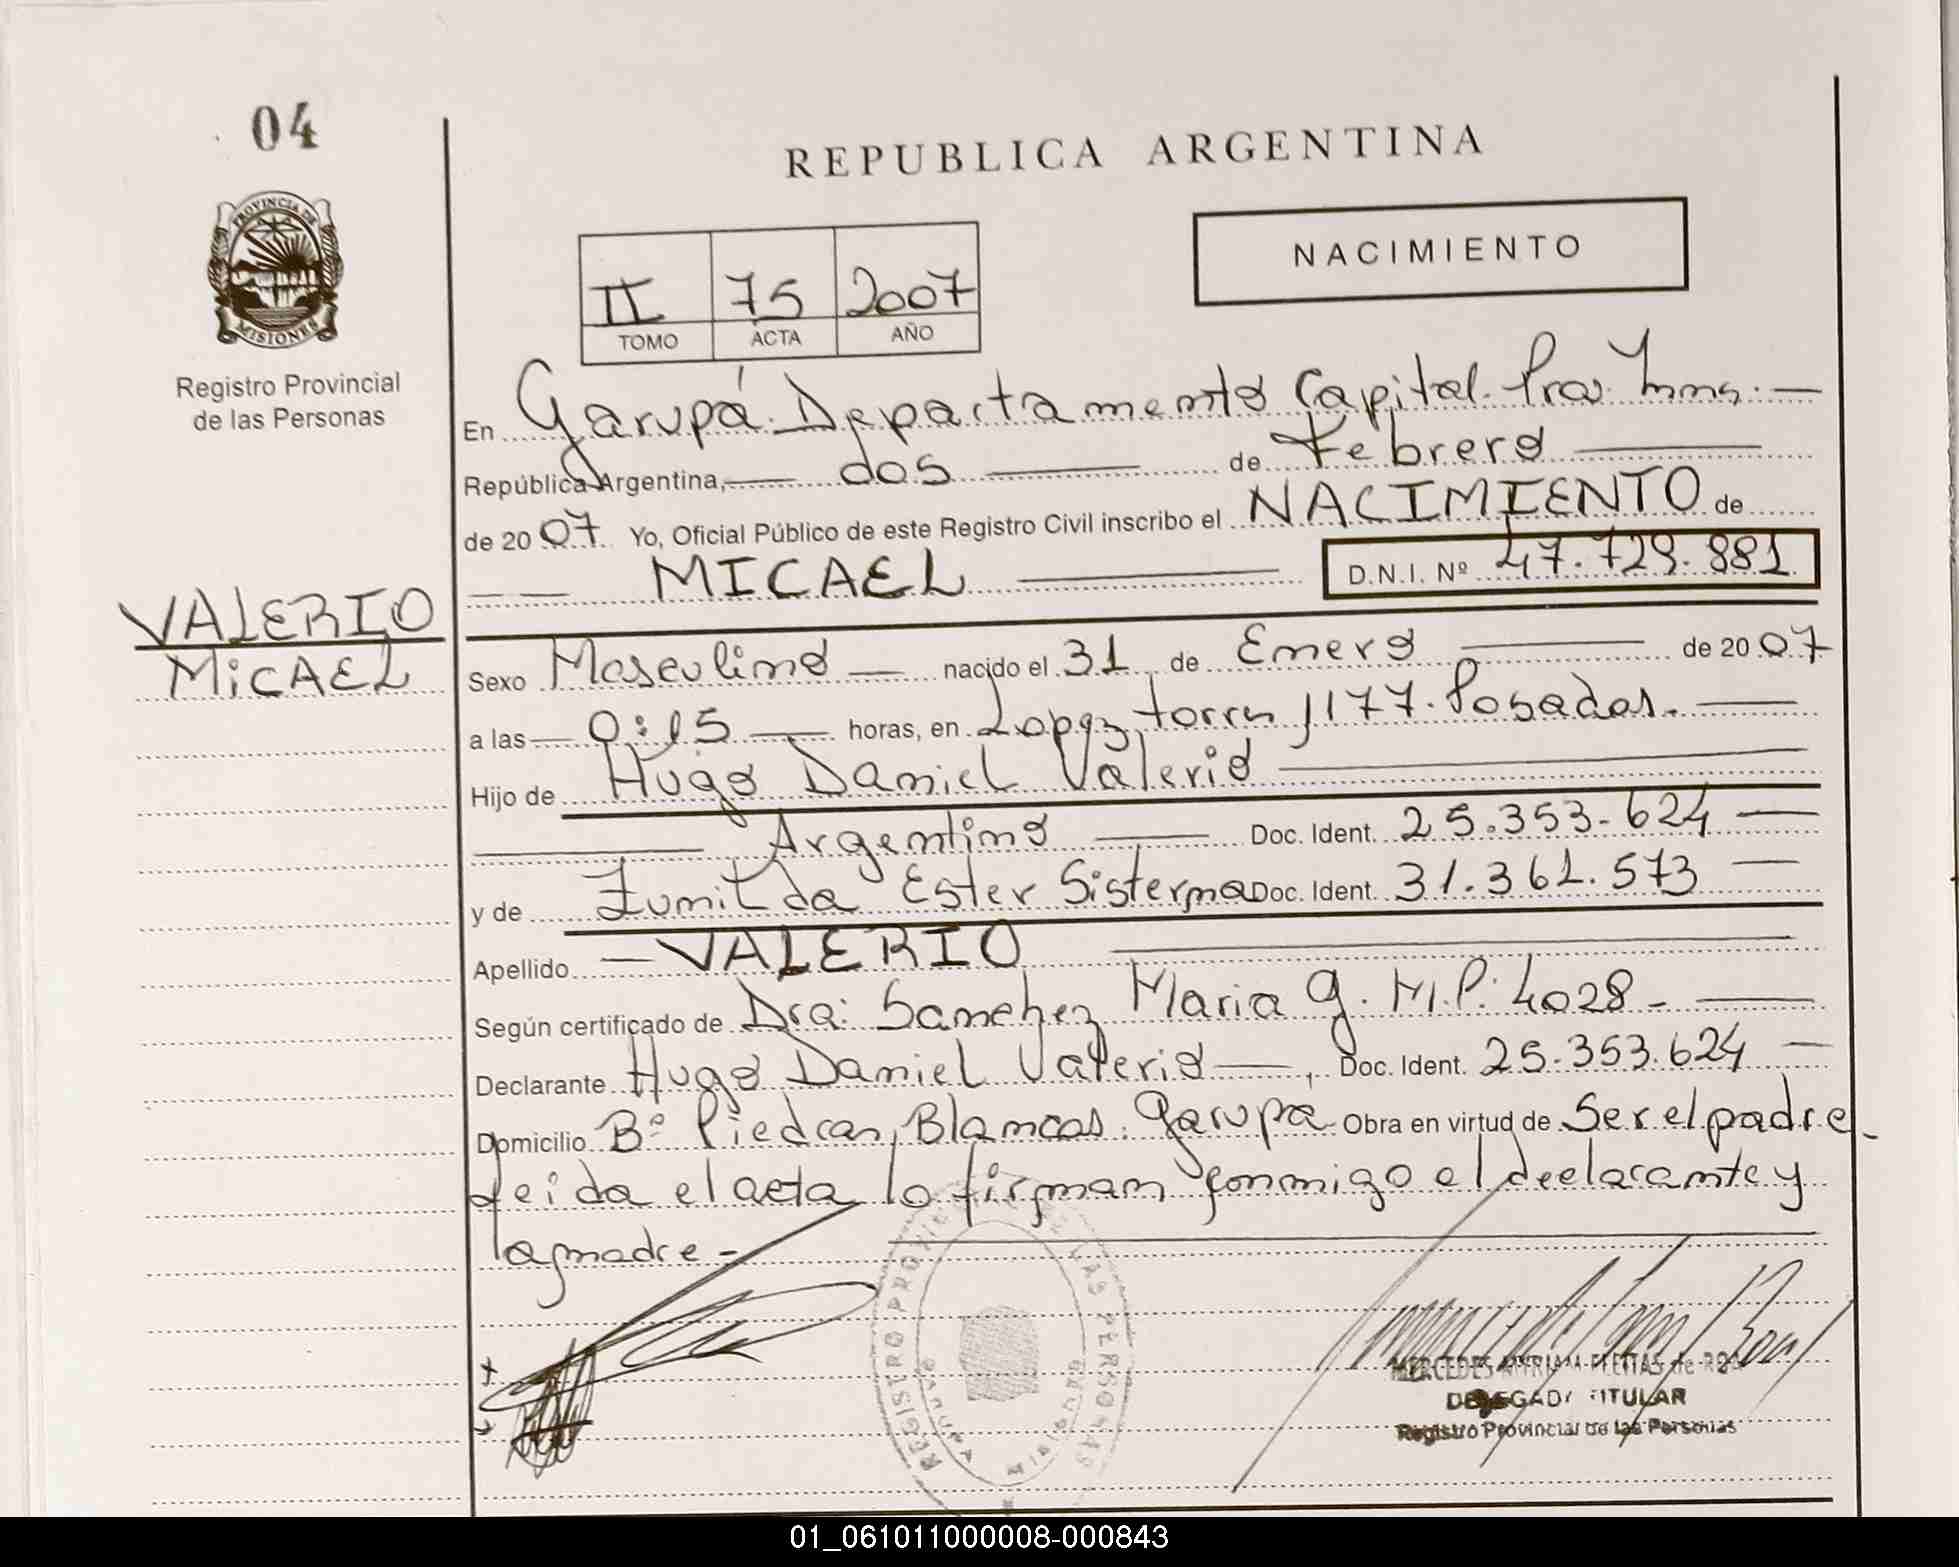 04
REPUBLICA ARGENTINA
PROVINCIA DE
MISIONES
Registro Provincial
de las Personas
II 75 2007
TOMO ACTA AÑO
NACIMIENTO
En Garupá. Departamento Capital. Pro. Mnes. —
República Argentina, — dos — de Febrero —
de 20 07 Yo, Oficial Público de este Registro Civil inscribo el NACIMIENTO de
— — MICAEL — D.N.I. Nº 47.729.881
VALERIO
MiCAEL
Sexo Masculino — nacido el 31 de Enero — de 20 07
a las — 0:15 — horas, en Lopez torres 1177. Posadas. —
Hijo de Hugo Daniel Valerio —
— Argentino — Doc. Ident. 25.353.624 —
y de Zunilda Ester Sisterna Doc. Ident. 31.361.573 —
Apellido — VALERIO —
Según certificado de Dra: Sanchez Maria G. M.P. 4028 - —
Declarante Hugo Daniel Valerio —, Doc. Ident. 25.353.624 —
Domicilio Bº Piedras Blancas. Garupa Obra en virtud de Ser el padre.
Leida el acta lo firman conmigo el declarante y
la madre -
REGISTRO PROVINCIAL DE LAS PERSONAS
GARUPA MISIONES
MERCEDES MYRIAM FLEITAS de
DELEGADA TITULAR
Registro Provincial de las Personas
01_061011000008-000843